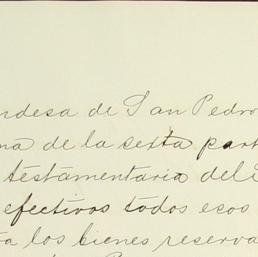 ndesa de San Pedro
na de la sexta part
testamentaria del
efectivos todos esos
los bienes reserva